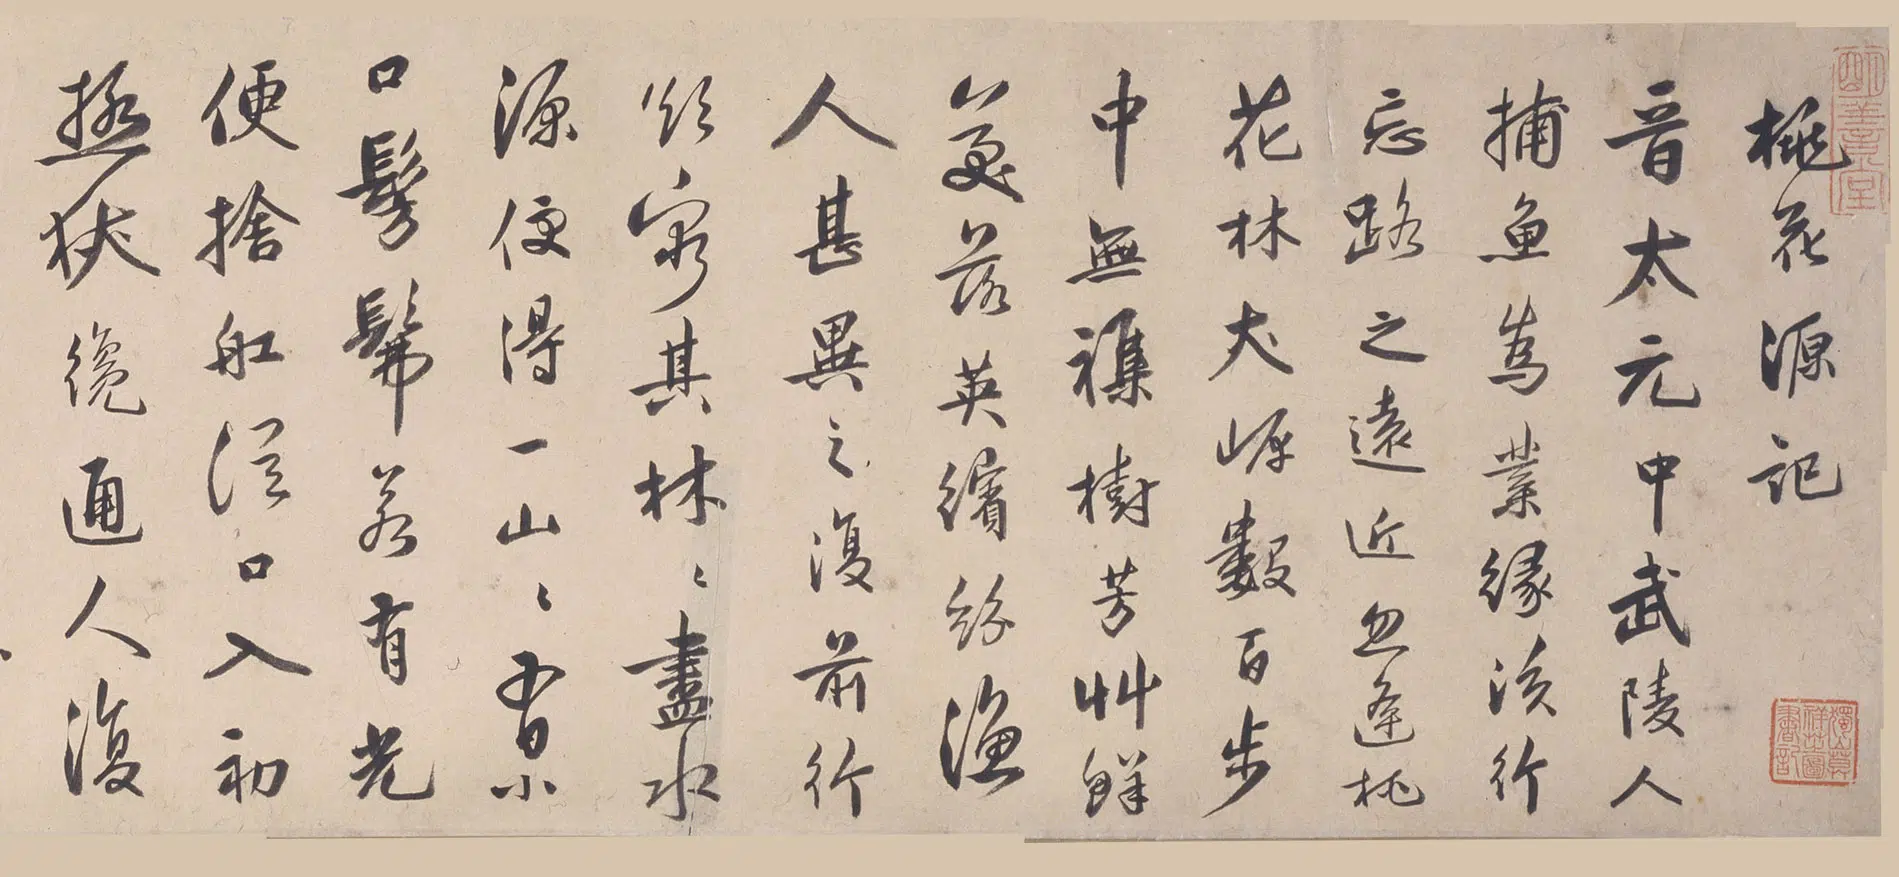 桃花源記
晉太元中武陵人
捕魚為業緣溪行
忘路之遠近忽逢桃
花林夾岸數百步
中無雜樹芳艸鮮
美落英繽紛漁
人甚異之復前行
欲窮其林〻盡水
源便得一山〻有小
口髣髴若有光
便捨舡從口入初
極狹纔通人復
獨山莫祥芝圖書記